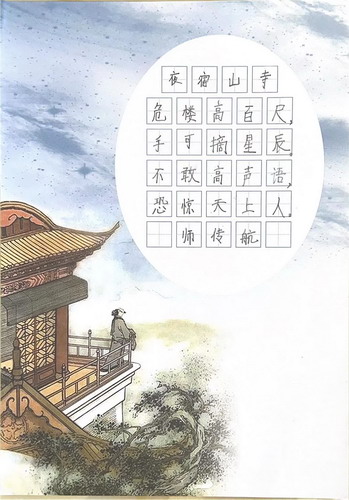 夜宿山寺
危楼高百尺,
手可摘星辰,
不敢高声语,
恐惊天上人,
师传航